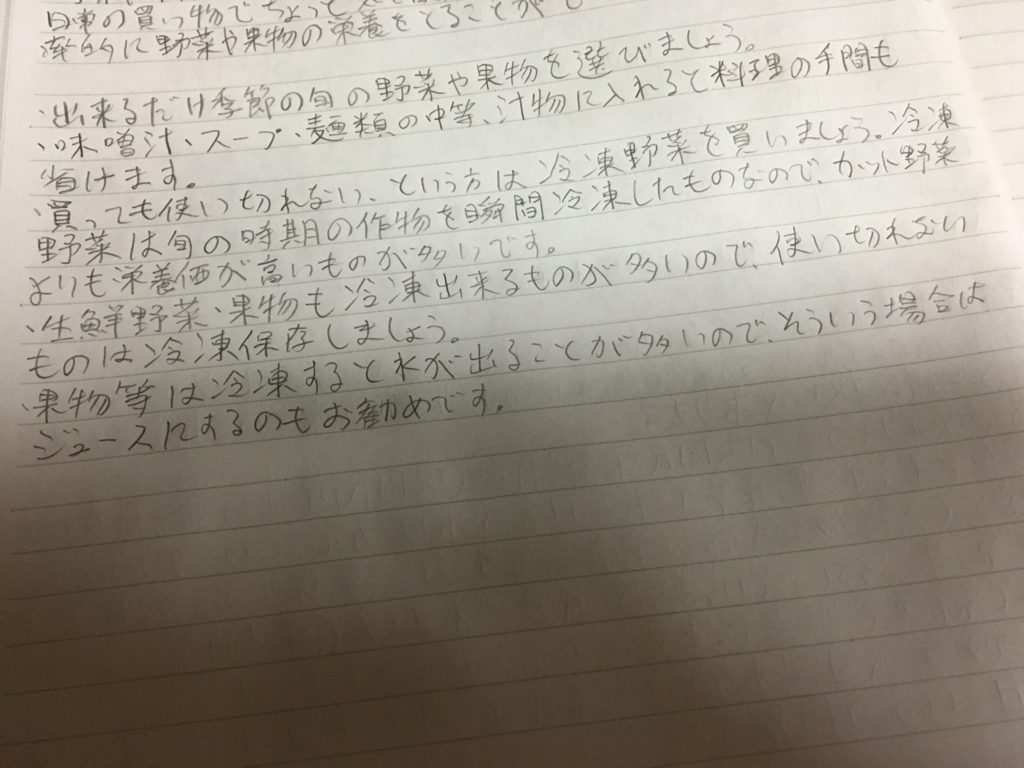 日々の買い物でちょっと
率的に野菜や果物の栄養をとることが
・出来るだけ季節の旬の野菜や果物を選びましょう。
・味噌汁、スープ、麺類の中等、汁物に入れると料理の手間も
省けます。
・買っても使い切れない、という方は冷凍野菜を買いましょう。冷凍
野菜は旬の時期の作物を瞬間冷凍したものなので、カット野菜
よりも栄養価が高いものが多いです。
・生鮮野菜、果物も冷凍出来るものが多いので、使い切れない
ものは冷凍保存しましょう。
・果物等は冷凍すると水が出ることが多いので、そういう場合は
ジュースにするのもお勧めです。